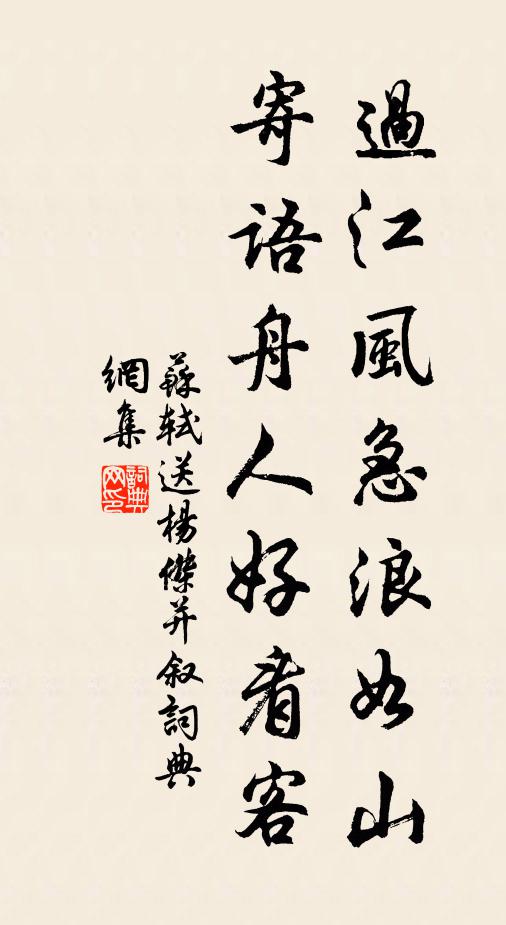 過江風急浪如山
寄語舟人好看客
蘇軾送楊傑并叙詞典
網集
詞典
网印